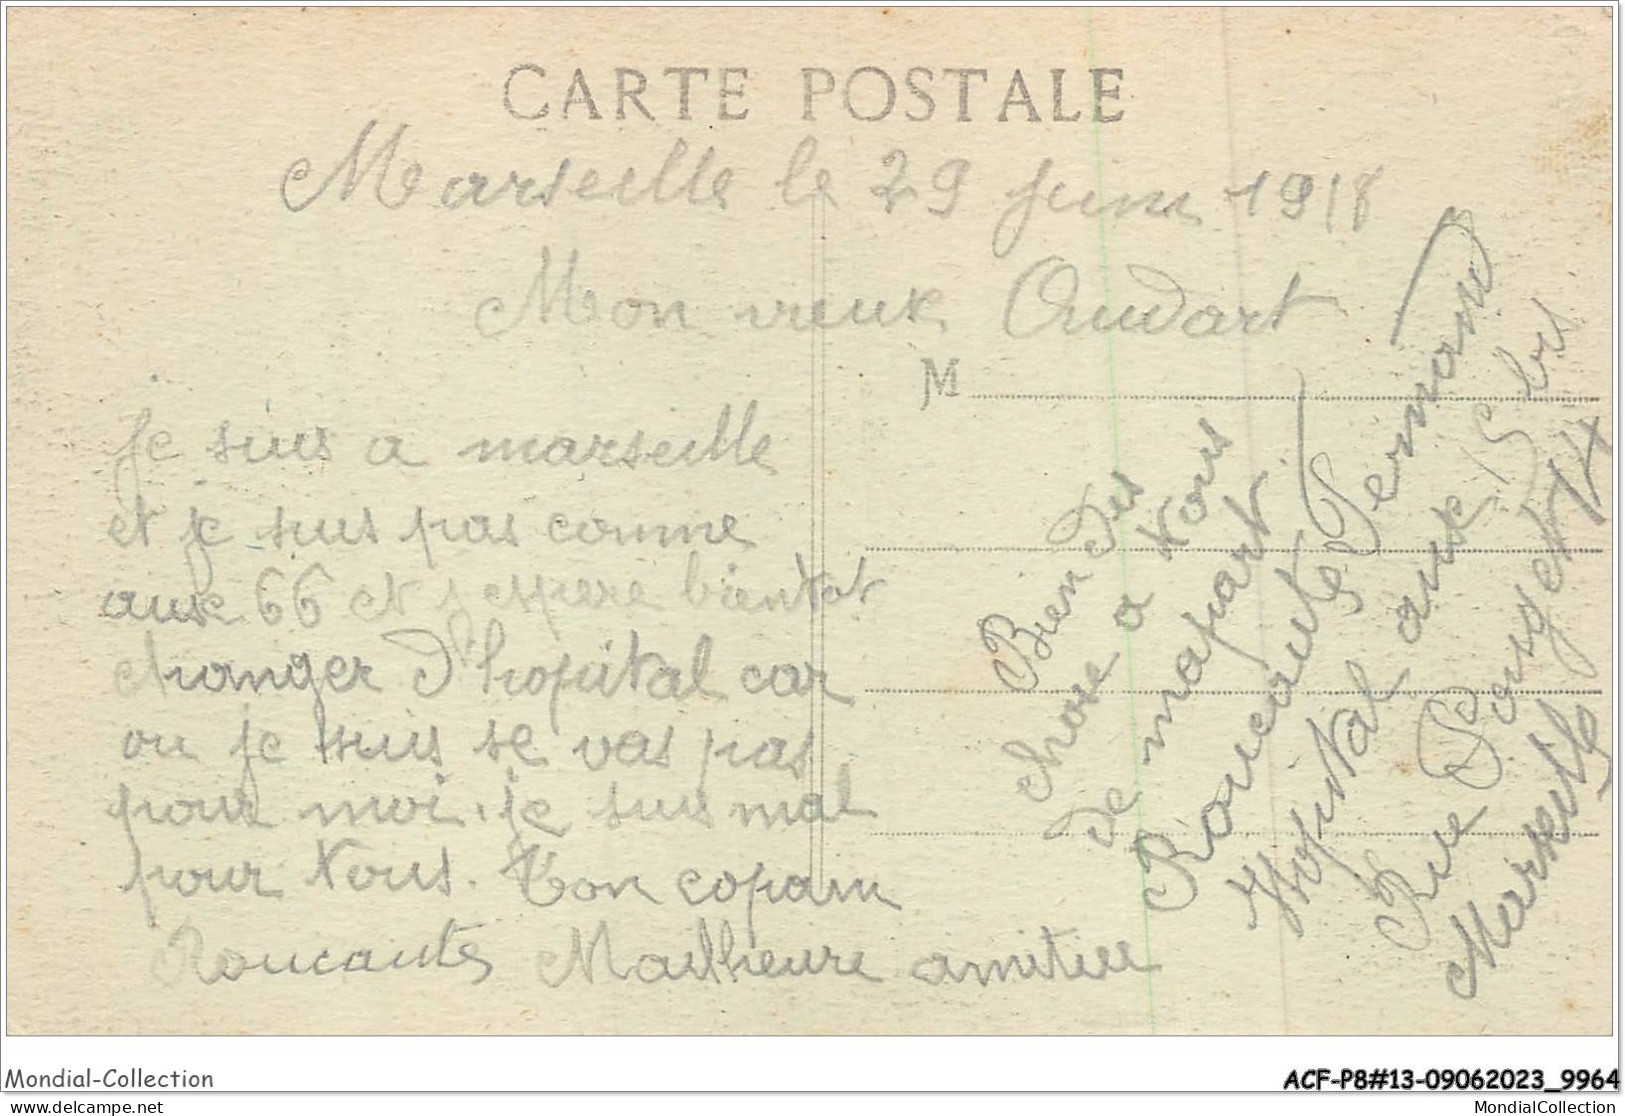 CARTE POSTALE
Marseille le 29 juin 1918
Mon vieux Oudart
M
Je suis a marseille
et je suis pas comme
aux 66 et j espere bientot
changer d'hopital car
ou je suis se vas pas
pour moi. je suis mal
pour tous. Ton copain
Roucautes Mailheure amitiee
Bien des
chose a tous
de mapart
Roucaute Fernand
Hopital auxe 15 bis
Rue Pouget 14
Marseille
Mondial-Collection
ACF-P8#13-09062023_9964
delcampe.net
MondialCollection